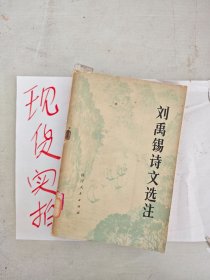 现货实拍
刘禹锡诗文选注